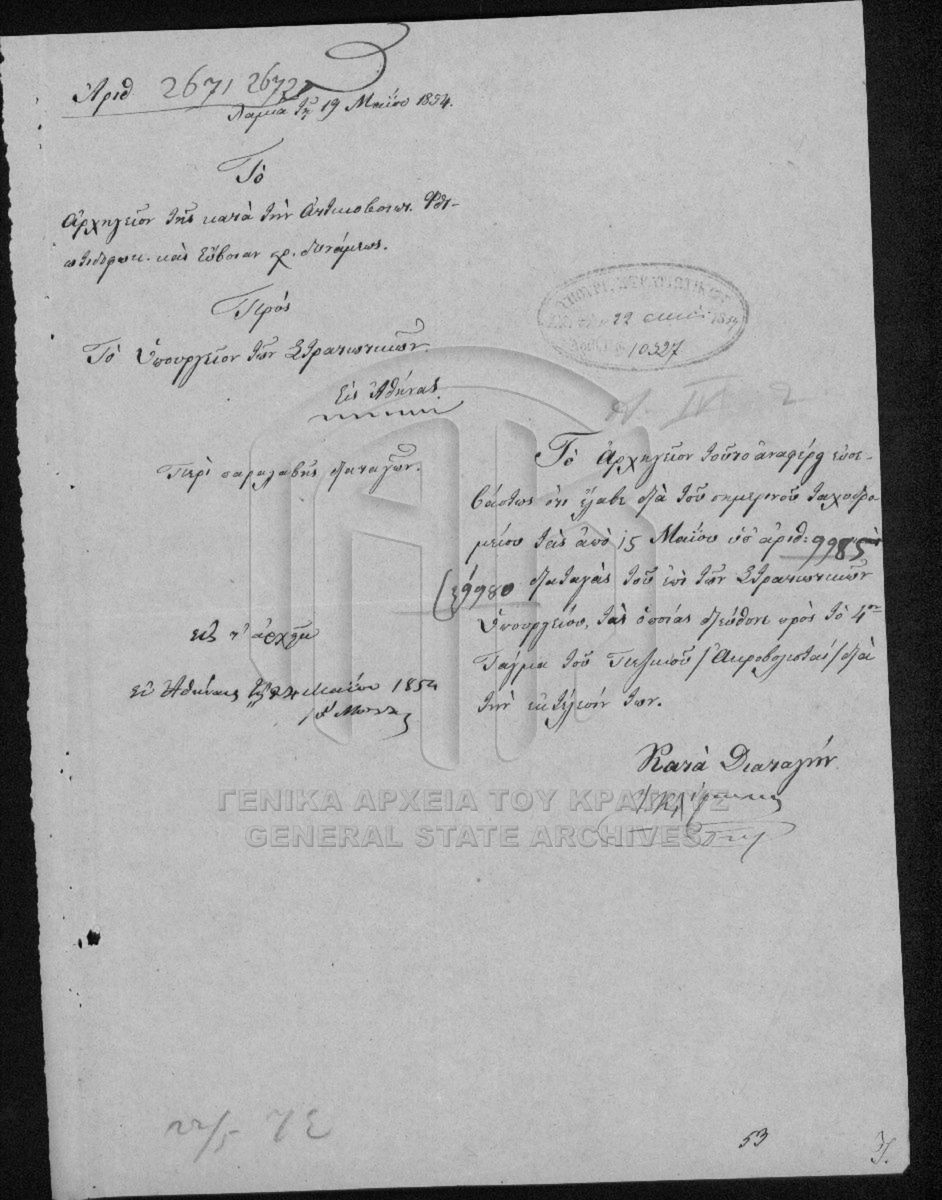 Ἀριθ 2671 2672
Λαμία τῇ 19 Μαΐου 1854.
Τὸ
Ἀρχηγεῖον τῆς κατὰ τὴν Ἀττικοβοιωτ. Φθι-
ωτιδοφωκ. καὶ Εὔβοιαν χρ. δυνάμεως.
Πρὸς
Τὸ Ὑπουργεῖον τῶν Στρατιωτικῶν.
Εἰς Ἀθήνας.
22 1854
10527
Περὶ παραλαβῆς διαταγῶν.
Τὸ Ἀρχηγεῖον τοῦτο ἀναφέρει εὐσε-
βάστως ὅτι ἔλαβε διὰ τοῦ σημερινοῦ ταχυδρο-
μείου τὰς ἀπὸ 15 Μαΐου ὑπ' ἀριθ: 9985
9980 διαταγὰς τοῦ ἐπὶ τῶν Στρατιωτικῶν
Ὑπουργείου, τὰς ὁποίας διεύθυνε πρὸς τὸ 4ον
Τάγμα τοῦ Πεζικοῦ /Ἀκροβολισταί/ διὰ
τὴν ἐκτέλεσίν των.
εἰς τ' ἀρχεῖα
Ἐν Ἀθήναις τῇ 24 Μαΐου 1854
Κατὰ Διαταγήν
ΓΕΝΙΚΑ ΑΡΧΕΙΑ ΤΟΥ ΚΡΑΤΟΥΣ
GENERAL STATE ARCHIVES
22/5
53